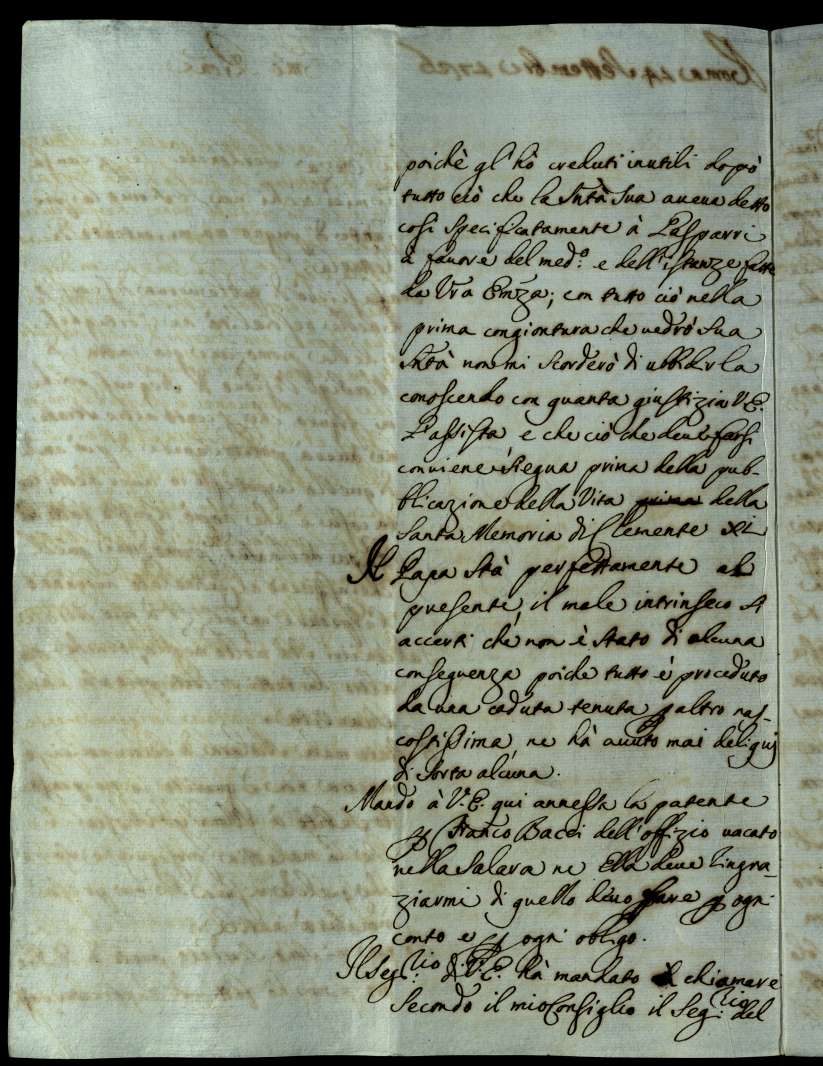 poichè gl'hò creduti inutili dopò
tutto ciò che la Sntà Sua aveva detto
così specificatamente à Gasparri
à favore del med.º e dell'istanze fatte
da Vra Emza; con tutto ciò nella
prima congiontura che vedrò Sua
Sntà non mi scorderò di ubbidirla
conoscendo con quanta giustizia V.E.
l'assista e che ciò che deve farsi
conviene siegua prima della pub-
blicazione della Vita prima della
Santa Memoria di Clemente XI
Il Papa stà perfettamente al
presente, il male intrinseco si
accerti che non è stato di alcuna
conseguenza poiche tutto è proceduto
da una caduta tenuta p altro nas-
costissima, ne hà avuto mai deliquj
di sorta alcuna.
Mando à V.E. qui annessa la patente
p Franco Bacci dell'offizio vacato
nella Salara ne Ella deve ringra-
ziarmi di quello devo fare p ogni
conto e p ogni obligo.
Il Seg.rio di V.E. hà mandato à chiamare
secondo il mio Consiglio il Seg.rio del